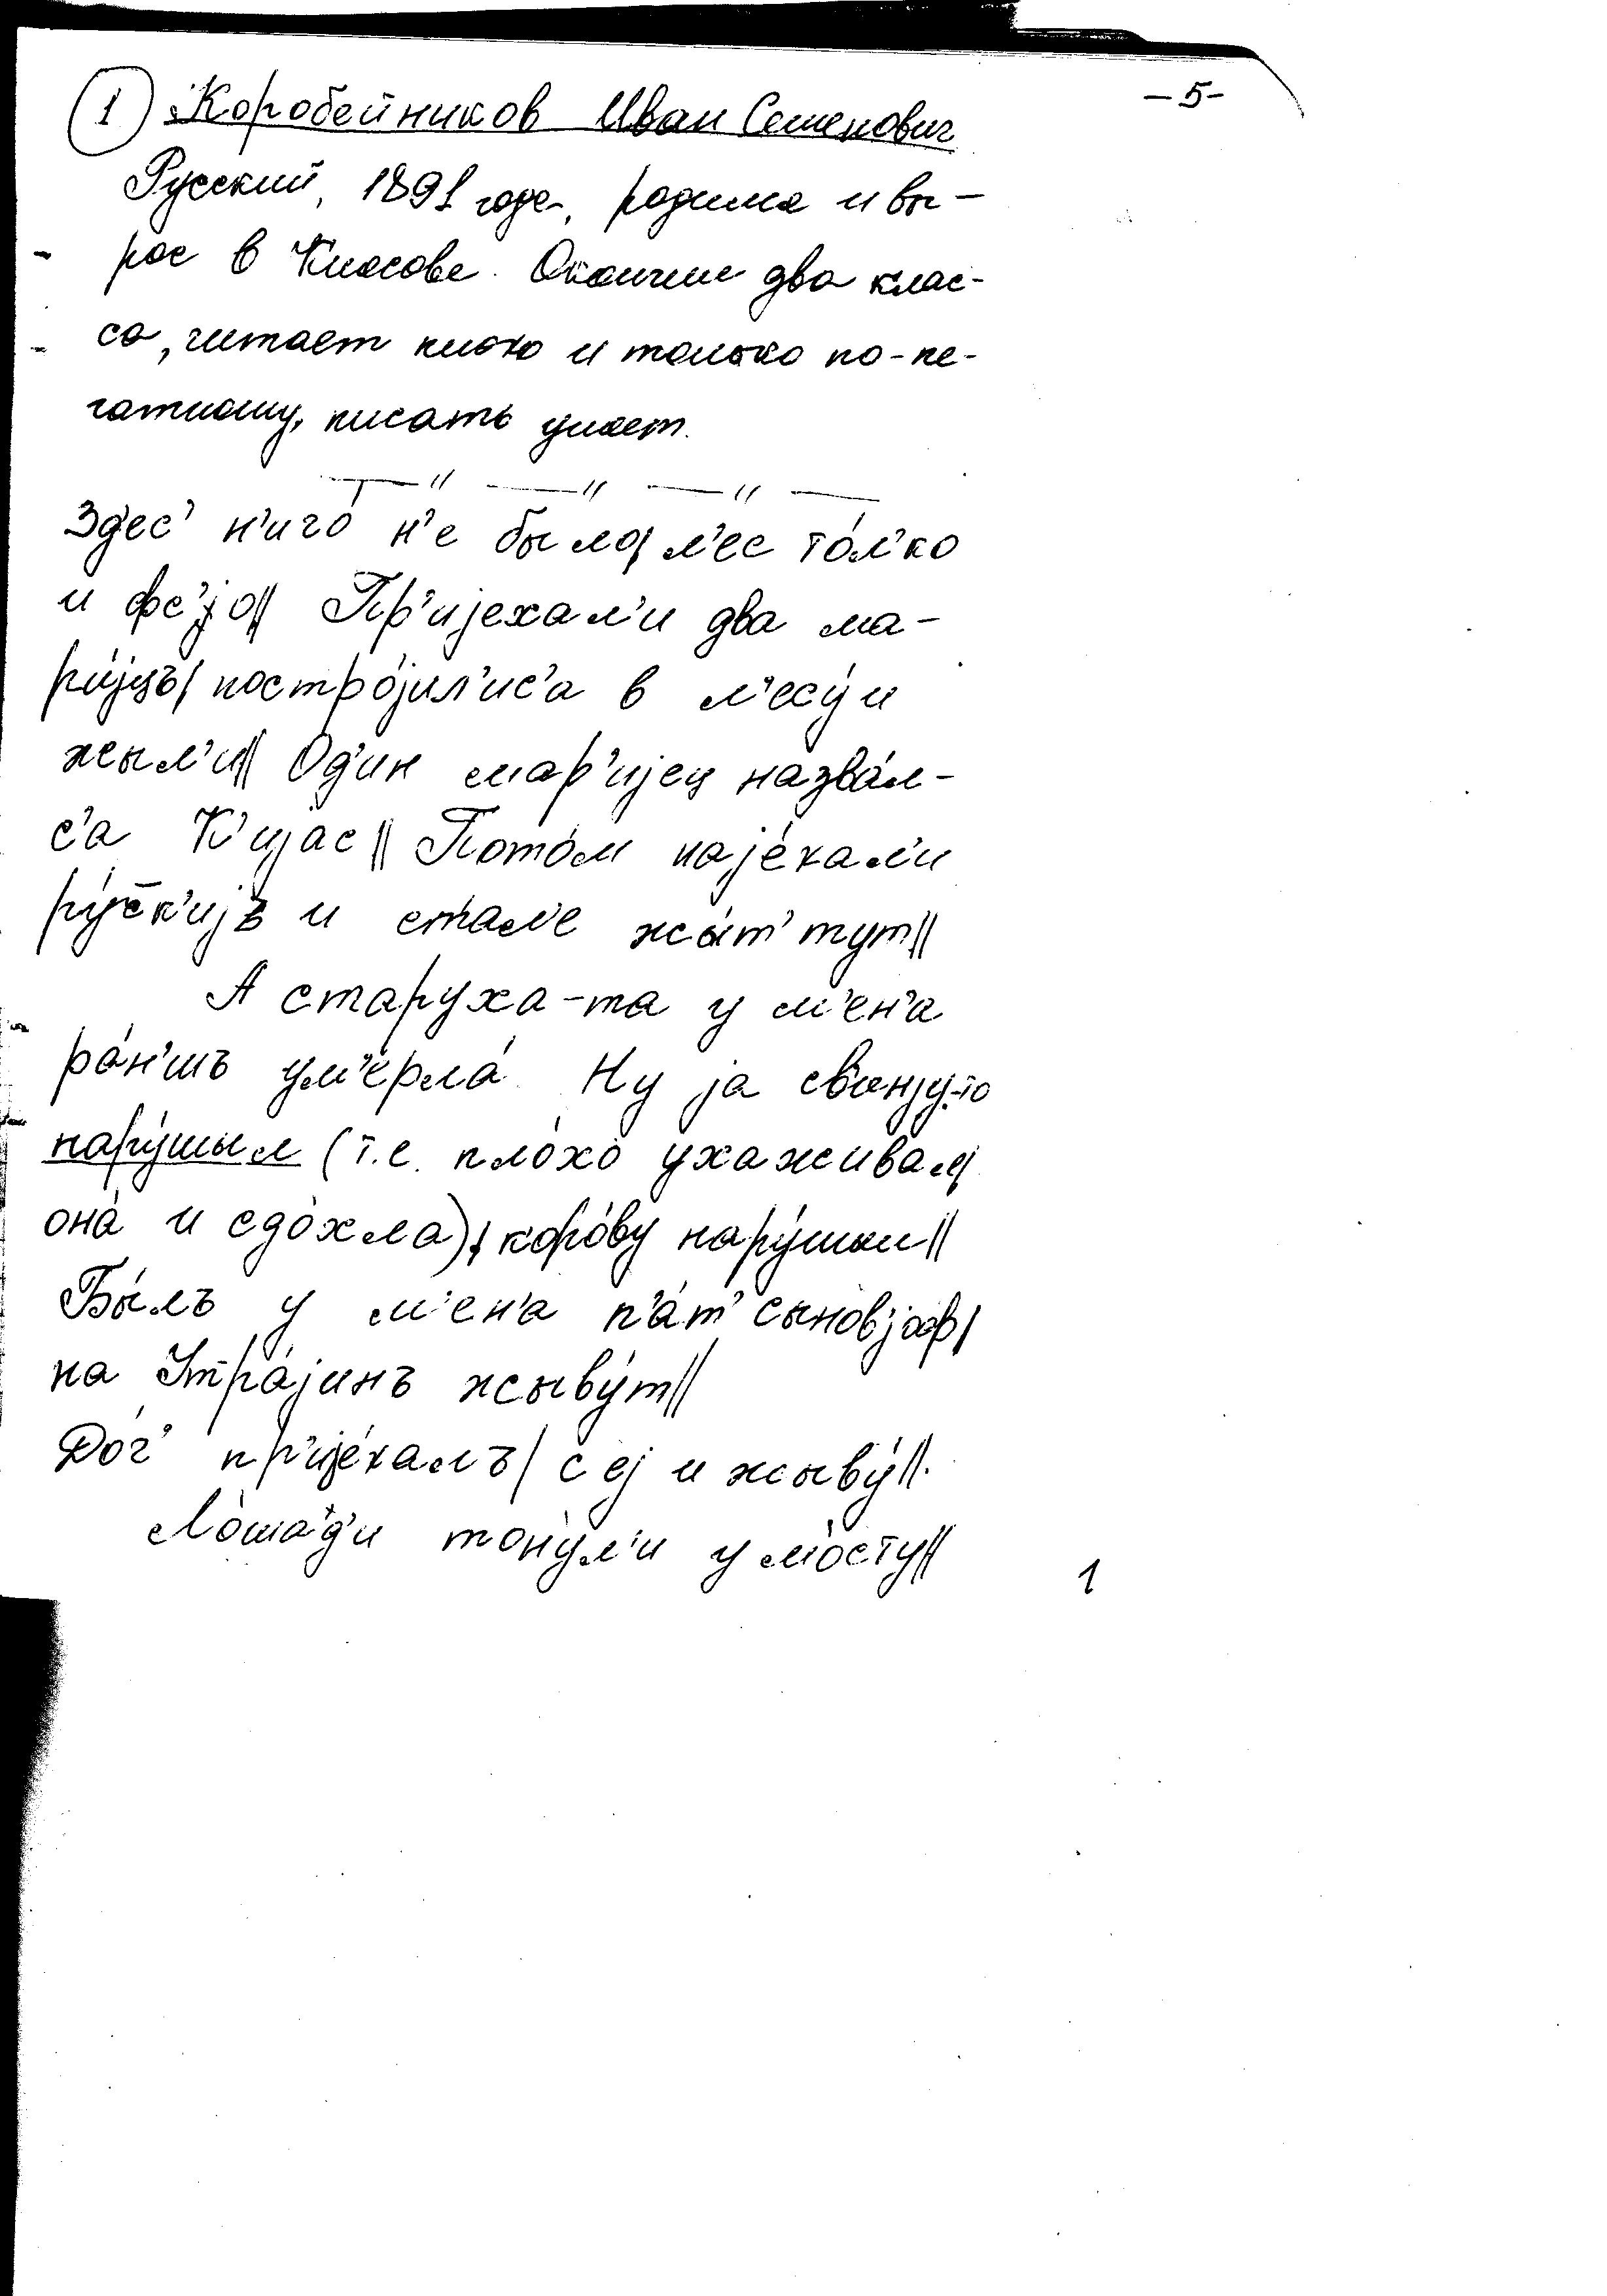 – 5 –
1 Коробейников Иван Семенович
Русский, 1891 года, родился и вы-
рос в Киясове. Окончил два клас-
са, читает плохо и только по-пе-
чатному, писать умеет.
— " — " — " —
Зд'ес' н'иго́ н'е было| л'ес то́л'ко
и фс'о|| Пр'ијехал'и два ма-
ри́јцъ| постро́јил'ис'а в л'есу́ и
жыл'и|| Од'ин мар'ијец назва́л-
с'а К'ијас|| Пото́м најéхал'и
ру́с̄к'ијъ и стал'е жыт' тут||
А старуха-та у м'ен'а
ра́н'шъ ум'ерла́. Ну ја св'инју-то
нару́шыл (т.е. плохо ухаживал,
она́ и сдо́хла), коро́ву нару́шыл||
Бы́лъ у м'ен'а п'ат' сыновјоф|
на Украјинъ жыву́т||
Доч' пр'ијéхалъ| с еј и жыву́||
Ло́шад'и тону́л'и у мо́сту||
1